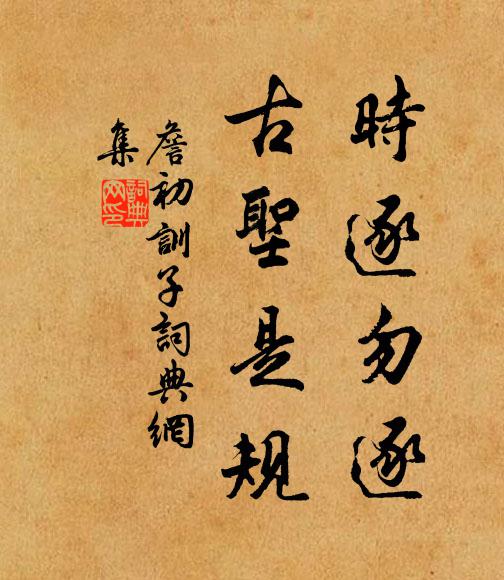 時逐勿逐
古聖是規
詹初訓子詞典網
集
詞典网印